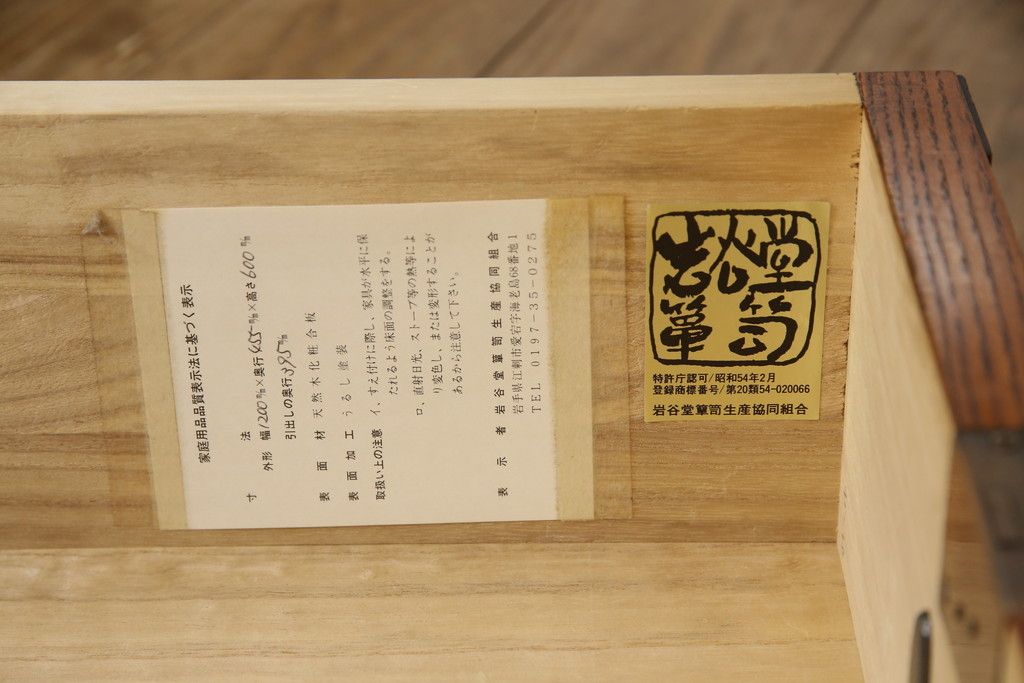 家庭用品品質表示法に基づく表示
寸法
外形 幅1200㎜×奥行455㎜×高さ600㎜
引出しの奥行395㎜
表面材 天然木化粧合板
表面加工 うるし塗装
取扱い上の注意 イ、すえ付けに際し、家具が水平に保
たれるよう床面の調整をする。
ロ、直射日光、ストーブ等の熱等によ
り変色し、または変形することが
あるから注意して下さい。
表示者 岩谷堂簞笥生産協同組合
岩手県江刺市愛宕字海老島68番地1
TEL 0197-35-0275
岩谷堂
簞笥
特許庁認可/昭和54年2月
登録商標番号/第20類54-020066
岩谷堂簞笥生産協同組合